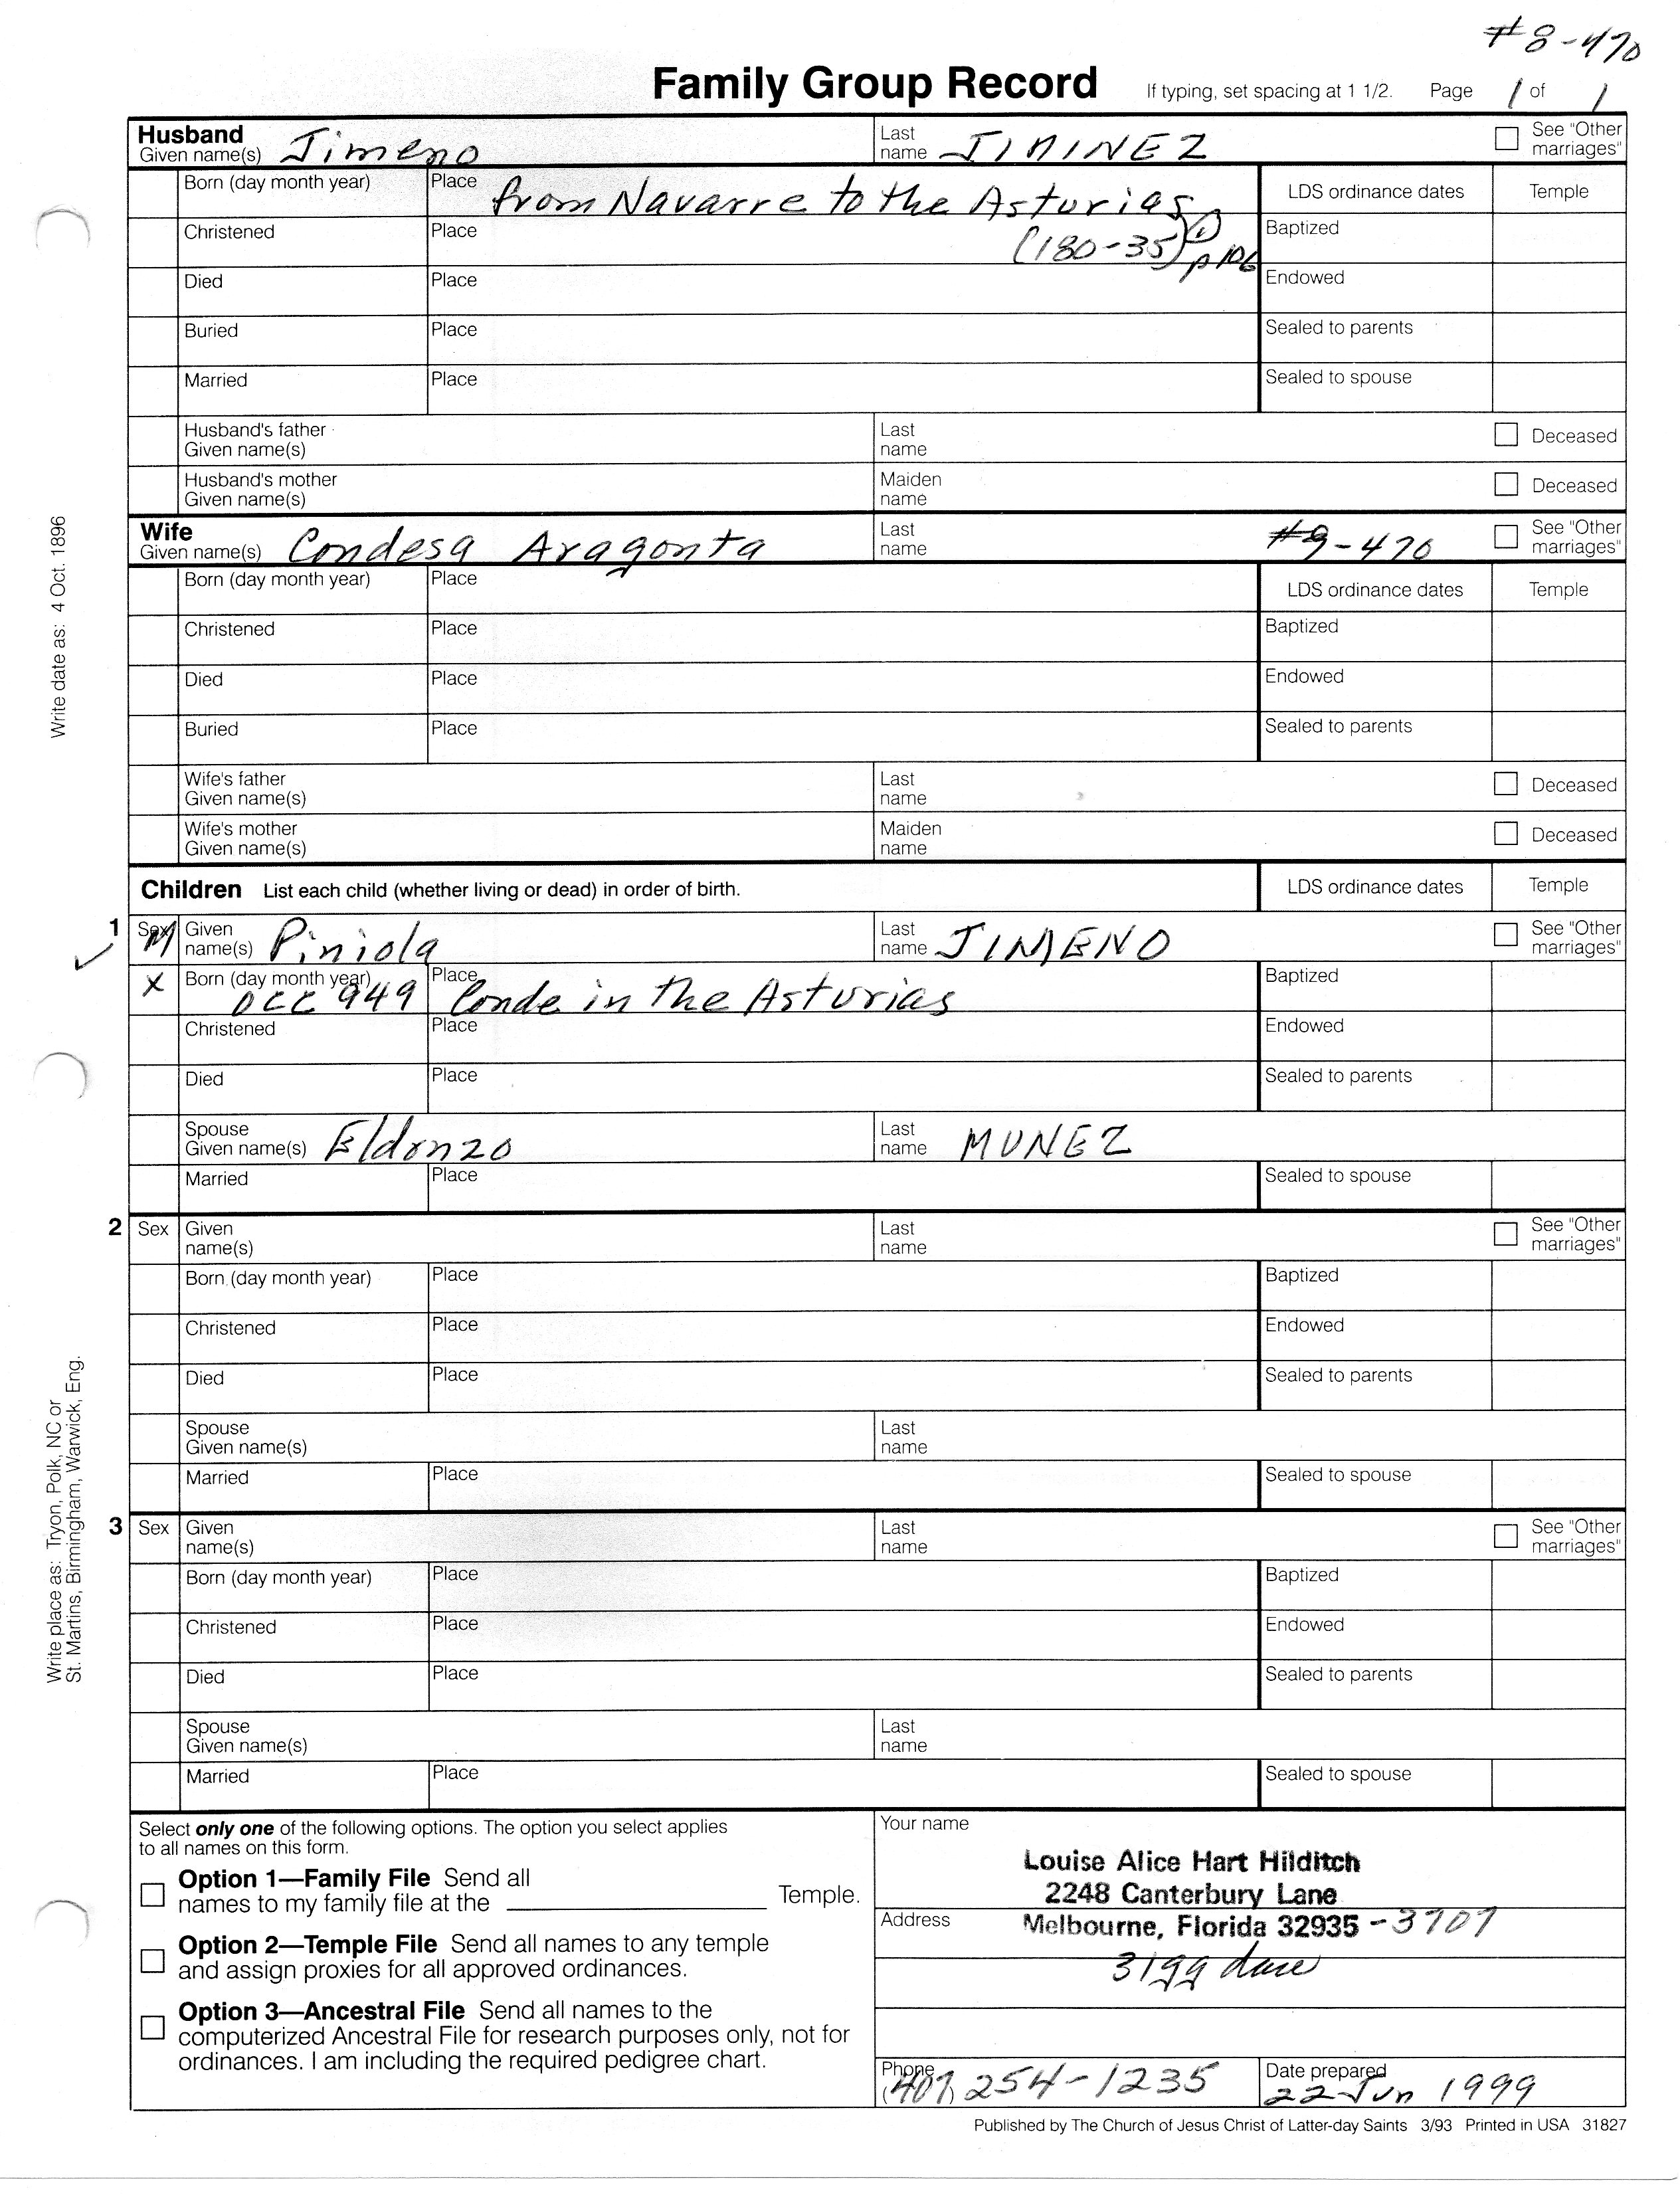 #8-470
Family Group Record If typing, set spacing at 1 1/2. Page 1 of 1
Husband
Given name(s) Jimeno Last name JININEZ See "Other marriages"
Born (day month year) Place from Navarre to the Asturias LDS ordinance dates Temple
Christened Place (180-35) (1) p 106 Baptized
Died Place Endowed
Buried Place Sealed to parents
Married Place Sealed to spouse
Husband's father Given name(s) Last name Deceased
Husband's mother Given name(s) Maiden name Deceased
Wife
Given name(s) Condesa Aragonta Last name #9-470 See "Other marriages"
Born (day month year) Place LDS ordinance dates Temple
Christened Place Baptized
Died Place Endowed
Buried Place Sealed to parents
Wife's father Given name(s) Last name Deceased
Wife's mother Given name(s) Maiden name Deceased
Children List each child (whether living or dead) in order of birth. LDS ordinance dates Temple
1 Sex M Given name(s) Piniola Last name JIMENO See "Other marriages"
X Born (day month year) DCC 949 Place Conde in the Asturias Baptized
Christened Place Endowed
Died Place Sealed to parents
Spouse Given name(s) Eldonzo Last name MUNEZ
Married Place Sealed to spouse
2 Sex Given name(s) Last name See "Other marriages"
Born (day month year) Place Baptized
Christened Place Endowed
Died Place Sealed to parents
Spouse Given name(s) Last name
Married Place Sealed to spouse
3 Sex Given name(s) Last name See "Other marriages"
Born (day month year) Place Baptized
Christened Place Endowed
Died Place Sealed to parents
Spouse Given name(s) Last name
Married Place Sealed to spouse
Select only one of the following options. The option you select applies
to all names on this form.
Option 1—Family File Send all
names to my family file at the Temple.
Option 2—Temple File Send all names to any temple
and assign proxies for all approved ordinances.
Option 3—Ancestral File Send all names to the
computerized Ancestral File for research purposes only, not for
ordinances. I am including the required pedigree chart.
Your name
Louise Alice Hart Hilditch
2248 Canterbury Lane
Address Melbourne, Florida 32935 -3707
Phone (407) 254-1235 Date prepared 22 Jun 1999
Published by The Church of Jesus Christ of Latter-day Saints 3/93 Printed in USA 31827
Write date as: 4 Oct. 1896
Write place as: Tryon, Polk, NC or
St. Martins, Birmingham, Warwick, Eng.